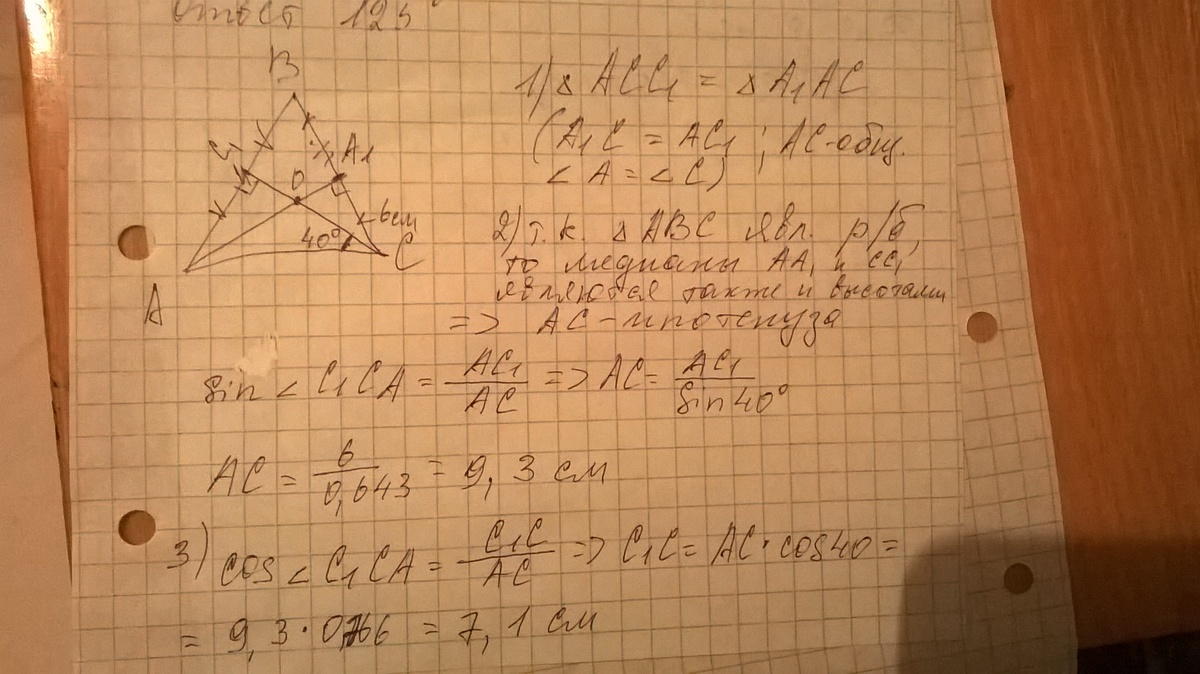 Ответ 125
B
C₁
A₁
O
6см
40°
C
A
1) Δ ACC₁ = Δ A₁AC
(A₁C = AC₁ ; AC-общ.
∠A = ∠C)
2) т.к. Δ ABC явл. р/б,
то медианы AA₁ и CC₁
являются также и высотами
=> AC-гипотенуза
sin ∠ C₁CA = AC₁/AC => AC = AC₁/sin 40°
AC = 6/0,643 = 9,3 см
3) cos ∠ C₁CA = C₁C/AC => C₁C = AC·cos40 =
= 9,3·0,766 = 7,1 см